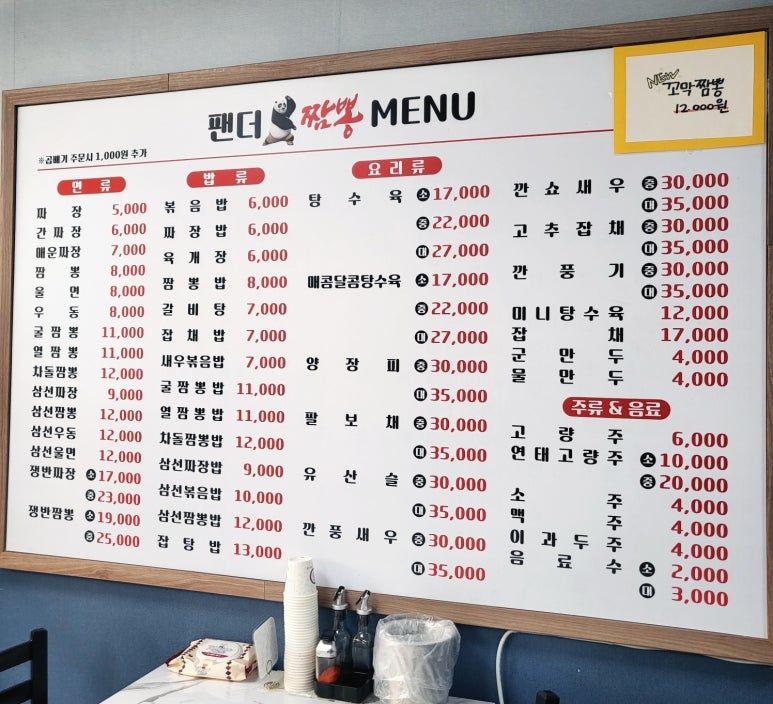 팬더 짬뽕 MENU
NEW
꼬막짬뽕
12,000원
※곱빼기 주문시 1,000원 추가
면 류
짜 장 5,000
간 짜 장 6,000
매운짜장 7,000
짬 뽕 8,000
울 면 8,000
우 동 8,000
굴 짬 뽕 11,000
열 짬 뽕 11,000
차돌짬뽕 12,000
삼선짜장 9,000
삼선짬뽕 12,000
삼선우동 12,000
삼선울면 12,000
쟁반짜장 소 17,000
중 23,000
쟁반짬뽕 소 19,000
중 25,000
밥 류
볶 음 밥 6,000
짜 장 밥 6,000
육 개 장 6,000
짬 뽕 밥 8,000
갈 비 탕 7,000
잡 채 밥 7,000
새우볶음밥 7,000
굴 짬 뽕 밥 11,000
열 짬 뽕 밥 11,000
차돌짬뽕밥 12,000
삼선짜장밥 9,000
삼선볶음밥 10,000
삼선짬뽕밥 12,000
잡 탕 밥 13,000
요 리 류
탕 수 육 소 17,000
중 22,000
대 27,000
매콤달콤탕수육 소 17,000
중 22,000
대 27,000
양 장 피 중 30,000
대 35,000
팔 보 채 중 30,000
대 35,000
유 산 슬 중 30,000
대 35,000
깐 풍 새 우 중 30,000
대 35,000
깐 쇼 새 우 중 30,000
대 35,000
고 추 잡 채 중 30,000
대 35,000
깐 풍 기 중 30,000
대 35,000
미 니 탕 수 육 12,000
잡 채 17,000
군 만 두 4,000
물 만 두 4,000
주류 & 음료
고 량 주 6,000
연 태 고 량 주 소 10,000
중 20,000
소 주 4,000
맥 주 4,000
이 과 두 주 4,000
음 료 수 소 2,000
대 3,000